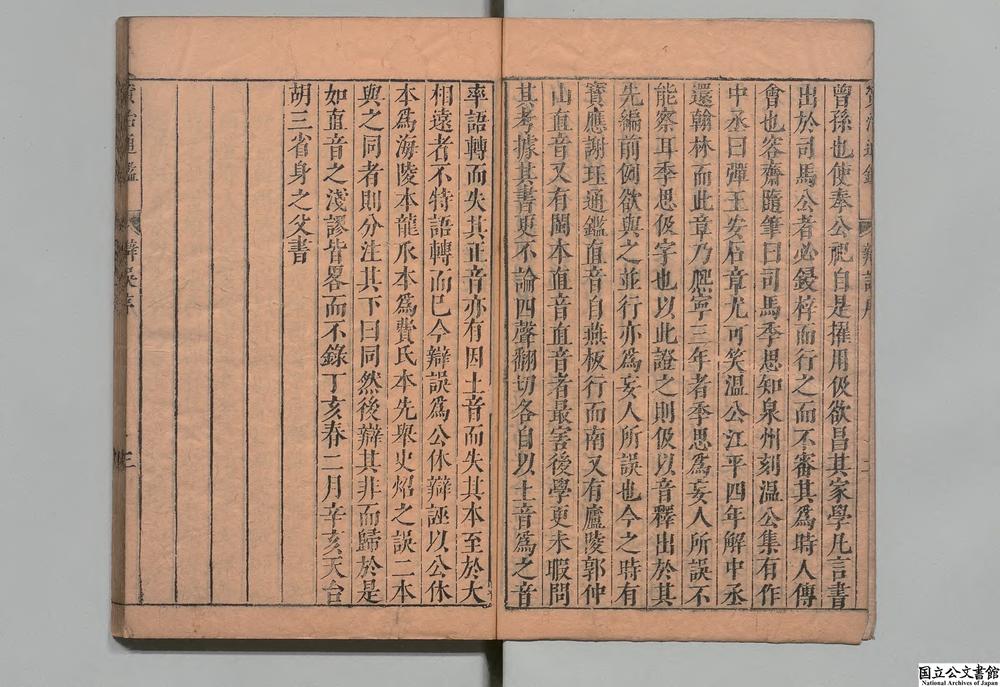 曾孫也使奉公祀自是擢用伋欲昌其家學凡言書
出於司馬公者必鋟梓而行之而不審其爲時人傳
會也容齋隨筆曰司馬季思知泉州刻溫公集有作
中丞日彈王安石章尤可笑溫公治平四年解中丞
還翰林而此章乃熈寧三年者季思爲妄人所誤不
能察耳季思伋字也以此證之則伋以音釋出於其
先編前例欲與之並行亦爲妄人所誤也今之時有
寶應謝珏通鑑直音自燕板行而南又有廬陵郭仲
山直音又有閩本直音直音者最害後學更未暇問
其考據其書更不論四聲翻切各自以土音爲之音
率語轉而失其正音亦有因土音而失其本至於大
相遠者不特語轉而已今辯誤爲公休辯誣以公休
本爲海陵本龍爪本爲費氏本先舉史炤之誤二本
與之同者則分注其下曰同然後辯其非而歸於是
如直音之淺謬皆畧而不錄丁亥春二月辛亥天台
胡三省身之父書
資治通鑑
辯誤序
三
国立公文書館
National Archives of Japan